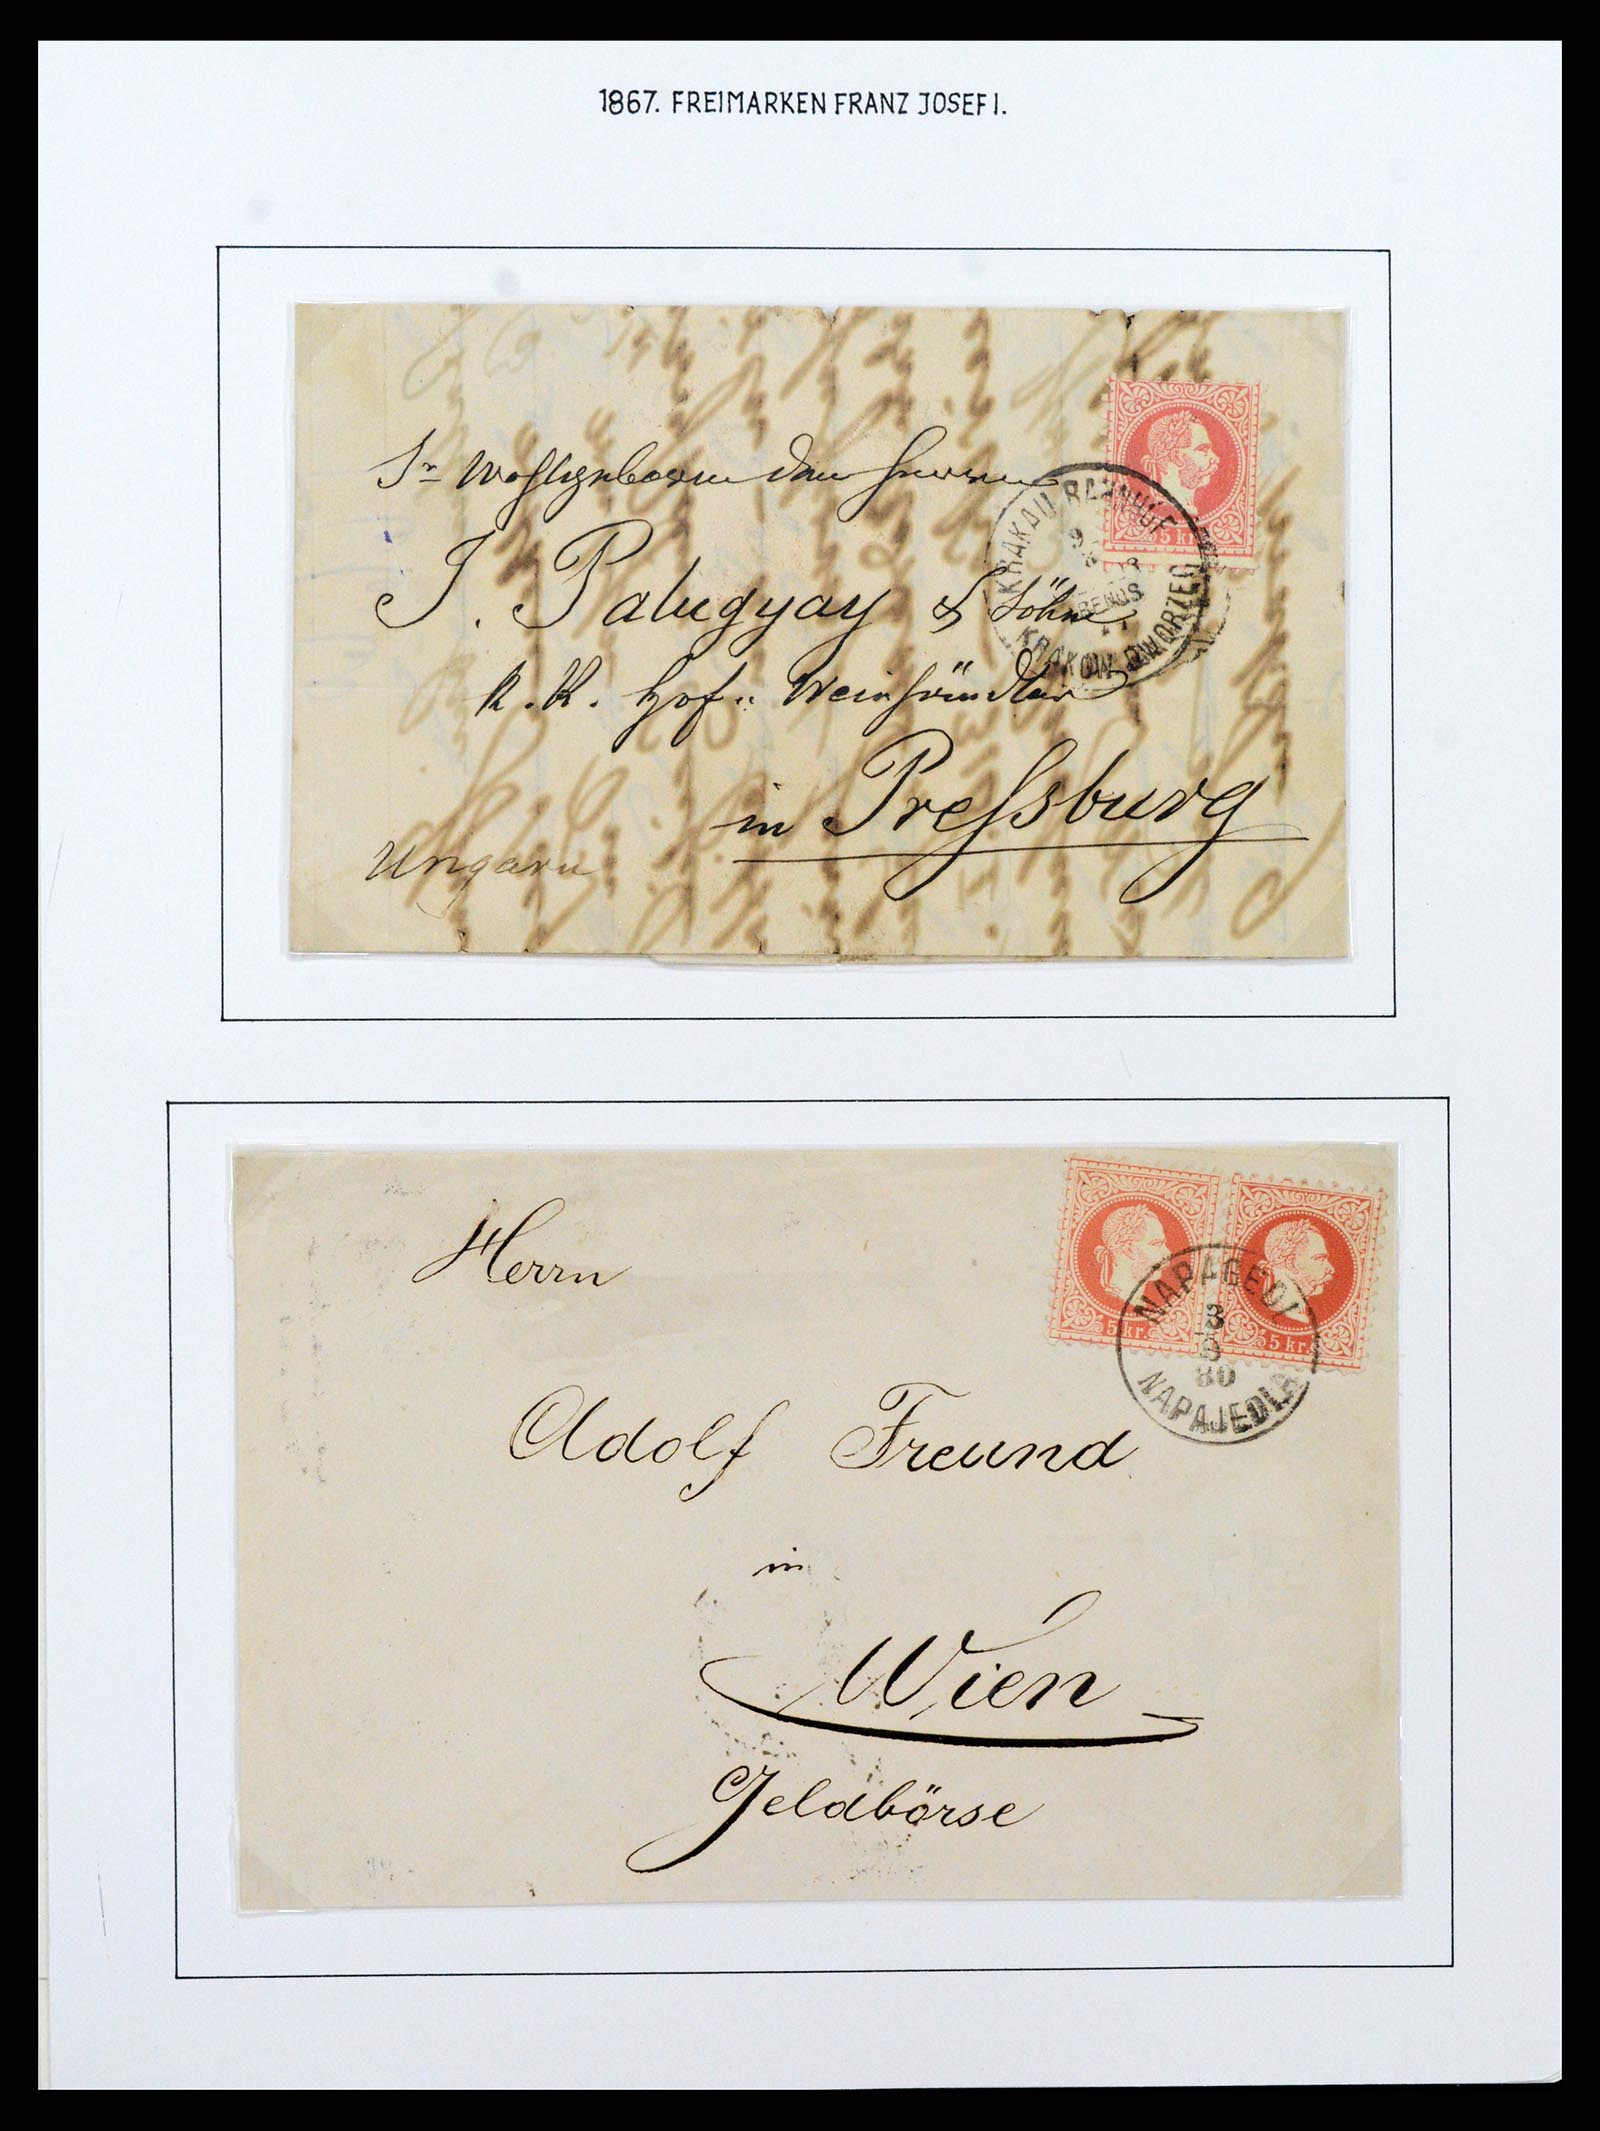 1867. FREIMARKEN FRANZ JOSEF I.
Sr Wohlgeboren dem Herrn
J. Palugyay & Söhne
k. k. Hof- Weinhändler
in Preſsburg
Ungarn
5 kr.
KRAKAU BAHNHOF
KRAKOW DWORZEC
Herrn
Adolf Freund
in
Wien
Geldbörse
5 kr. 5 kr.
NAPAGEDL
3
80
NAPAJEDLA